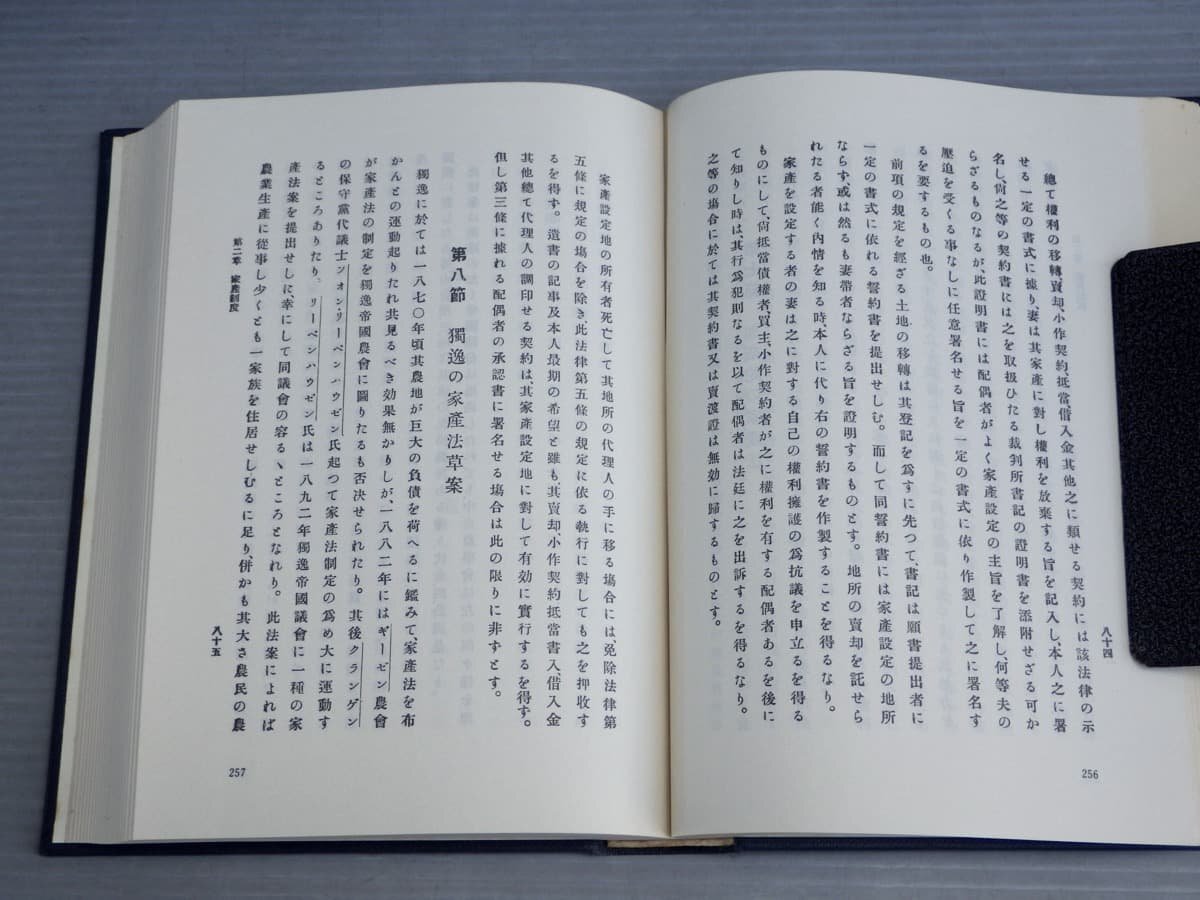 八十四
總て權利の移轉賣却、小作契約、抵當、借入金其他之に類せる契約には該法律の示
せる一定の書式に據り、妻は其家産に對し權利を放棄する旨を記入し本人之に署
名し、尙之等の契約書には之を取扱ひたる裁判所書記の證明書を添附せざる可か
らざるものなるが、此證明書には配偶者がよく家産設定の主旨を了解し何等夫の
壓迫を受くる事なしに任意署名せる旨を一定の書式に依り作製して之に署名す
るを要するもの也。
前項の規定を經ざる土地の移轉は其登記を爲すに先つて、書記は願書提出者に
一定の書式に依れる誓約書を提出せしむ。而して同誓約書には家産設定の地所
ならず、或は然るも妻帶者ならざる旨を證明するものとす。地所の賣却を託せら
れたる者能く內情を知る時、本人に代り右の誓約書を作製することを得るなり。
家産を設定する者の妻は之に對する自己の權利擁護の爲抗議を申立るを得る
ものにして、尙抵當債權者、買主、小作契約者が之に權利を有する配偶者あるを後に
て知りし時は、其行爲犯則なるを以て配偶者は法廷に之を出訴するを得るなり。
之等の塲合に於ては其契約書又は賣渡證は無効に歸するものとす。
256
家産設定地の所有者死亡して其地所の代理人の手に移る塲合には、免除法律第
五條に規定の塲合を除き此法律第五條の規定に依る執行に對しても之を押收す
るを得ず。遺書の記事及本人最期の希望と雖も、其賣却、小作契約抵當書入、借入金
其他總て代理人の調印せる契約は、其家産設定地に對して有効に實行するを得ず。
但し第三條に據れる配偶者の承認書に署名せる塲合は此の限りに非ずとす。
第八節 獨逸の家産法草案
獨逸に於ては一八七〇年頃其農地が巨大の負債を荷へるに鑑みて、家産法を布
かんとの運動起りたれ共見るべき効果無かりしが、一八八二年にはギーゼン農會
が家産法の制定を獨逸帝國農會に圖りたるも否決せられたり。其後クランゲン
の保守黨代議士ン、オン・リーベンハウゼン氏起つて家産法制定の爲め大に運動す
るところありたり、リーベンハウゼン氏は一八九二年獨逸帝國議會に一種の家
産法案を提出せしに幸にして同議會の容るゝところとなれり。此法案によれば
農業生産に從事し少くとも一家族を住居せしむるに足り、併かも其大さ農民の農
第二章 家産制度
八十五
257